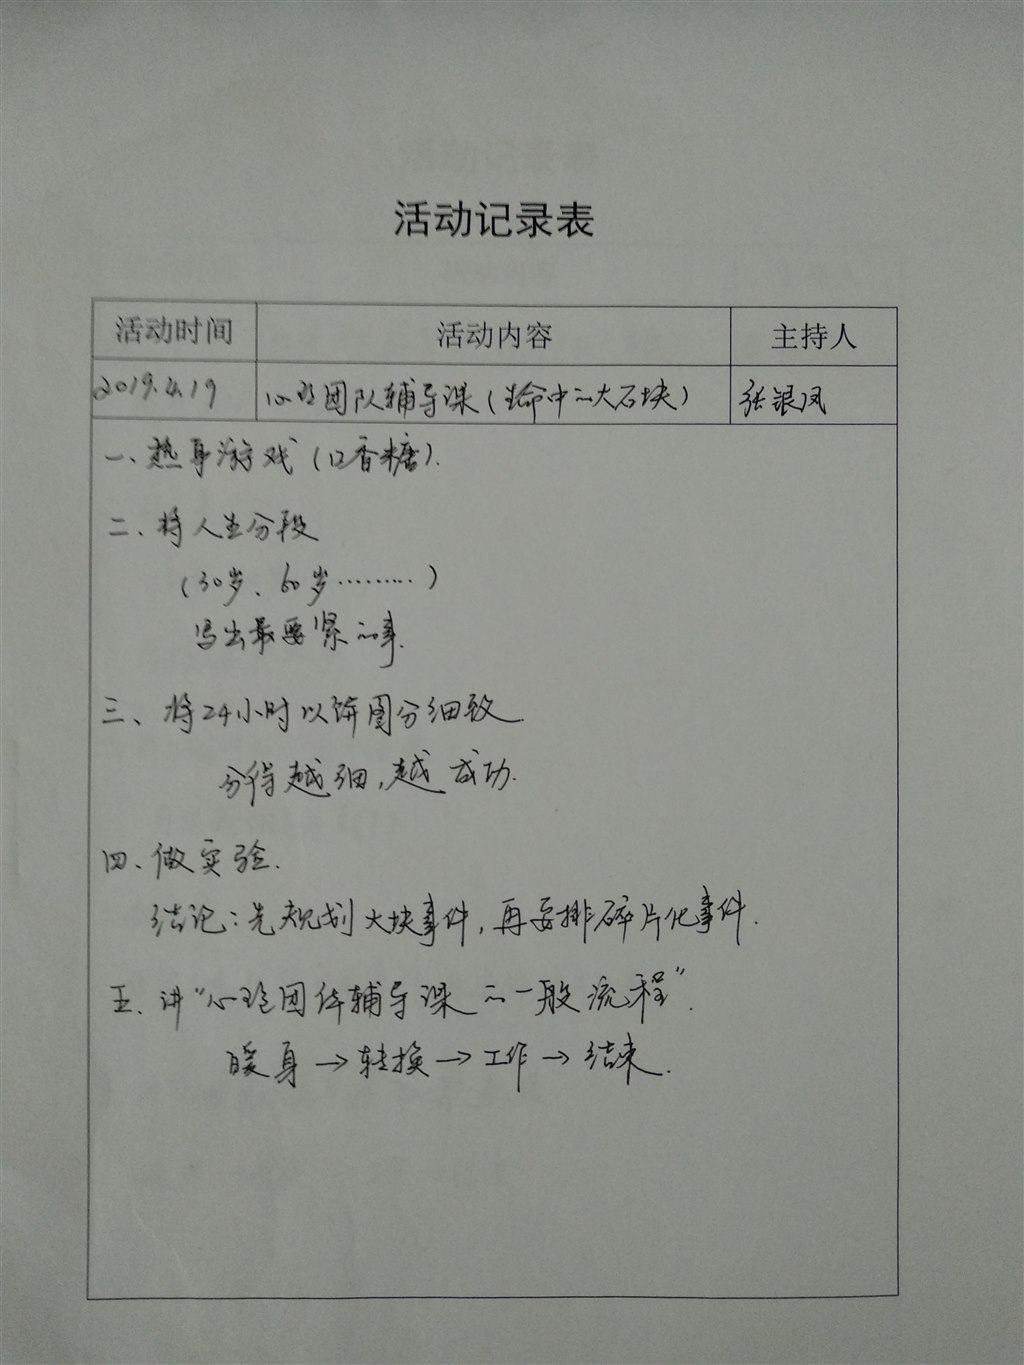 活动记录表
活动时间 活动内容 主持人
2019.4.19 心理团队辅导课(生命中的大石块) 张银凤
一、热身游戏(口香糖).
二、将人生分段
(30岁、60岁………)
写出最要紧的事.
三、将24小时以饼图分细致.
分得越细,越成功.
四、做实验.
结论:先规划大块事件,再安排碎片化事件.
五、讲“心理团体辅导课的一般流程”.
暖身→转换→工作→结束.